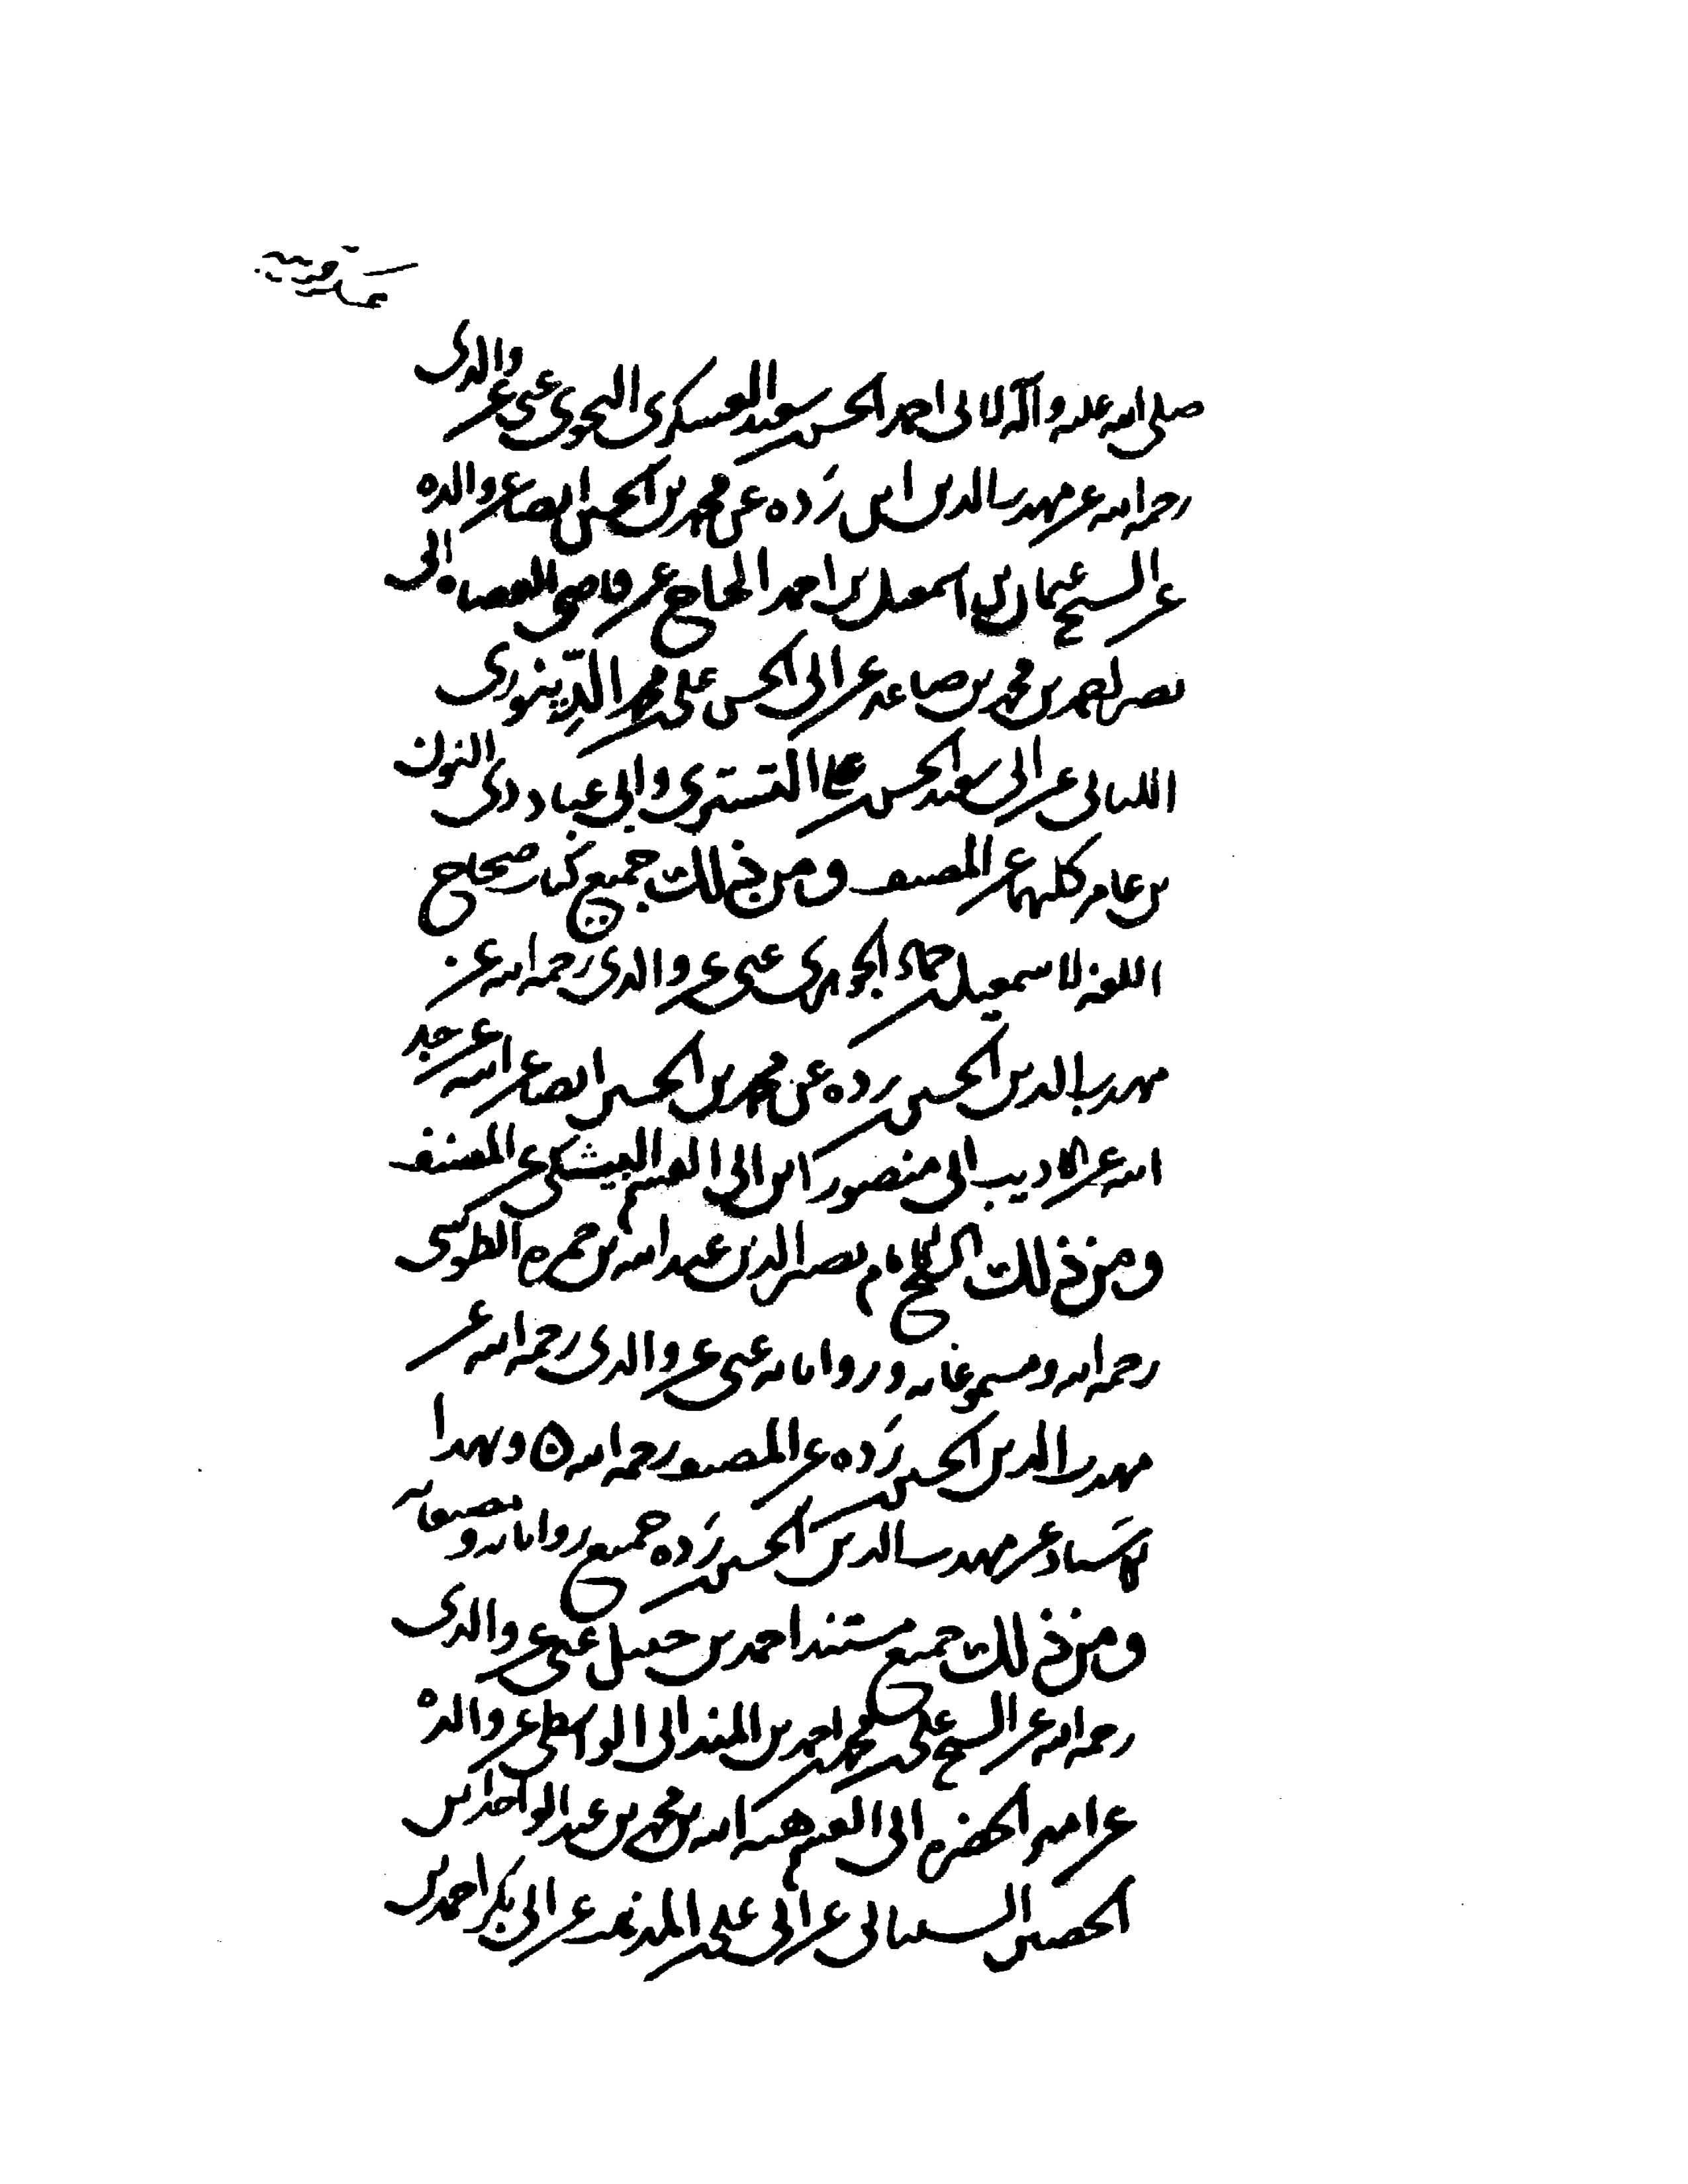 صلى الله عليه وآله لابي احمد الحسن بن سعيد العسكري النحوي عني عن والدي
رحمه الله عن مهذب الدين ابن رَده عن محمد بن الحسين ايضا عن والده
عن الشيخ عثمان بن اسمعيل بن احمد الحاج عن قاضي القضاه ابي
نصر احمد بن محمد بن صاعد عن ابي الحسن علي بن محمد الدِّينوري
اللبناني عن ابي سعيد الحسن بن علي التستري وابي عباد ذي النون
بن عامر كلهما عن المصنف ومن ذلك جميع كتاب صحاح
اللغه لاسمعيل بن حماد الجوهري عني عن والدي رحمه الله عن
مهذب الدين الحسين بن رده عن محمد بن الحسين ايضا عن ابيه عن جد
ابيه عن الاديب ابي منصور ابن ابي القسم البيشكي عن المصنف
ومن ذلك الشيخ الامام نصير الدين عبد الله بن حمزه الطوسي
رحمه الله ومسموعاته ورواياته عني عن والدي رحمه الله عن
مهذب الدين الحسين بن رَده عن المصنف رحمه الله ۵ وبهذا
الاسناد عن مهذب الدين الحسين بن رَده جميع رواياته وتصنيفاته
ومن ذلك جميع مسند احمد بن حنبل عني عن والدي
رحمه الله عن الشيخ علي بن محمد بن احمد بن المندائي الواسطي عن والده
عن ابي القسم هبة الله بن محمد بن عبد الواحد بن
الحصين الشيباني عن ابي علي بن المذهب عن ابي بكر احمد بن